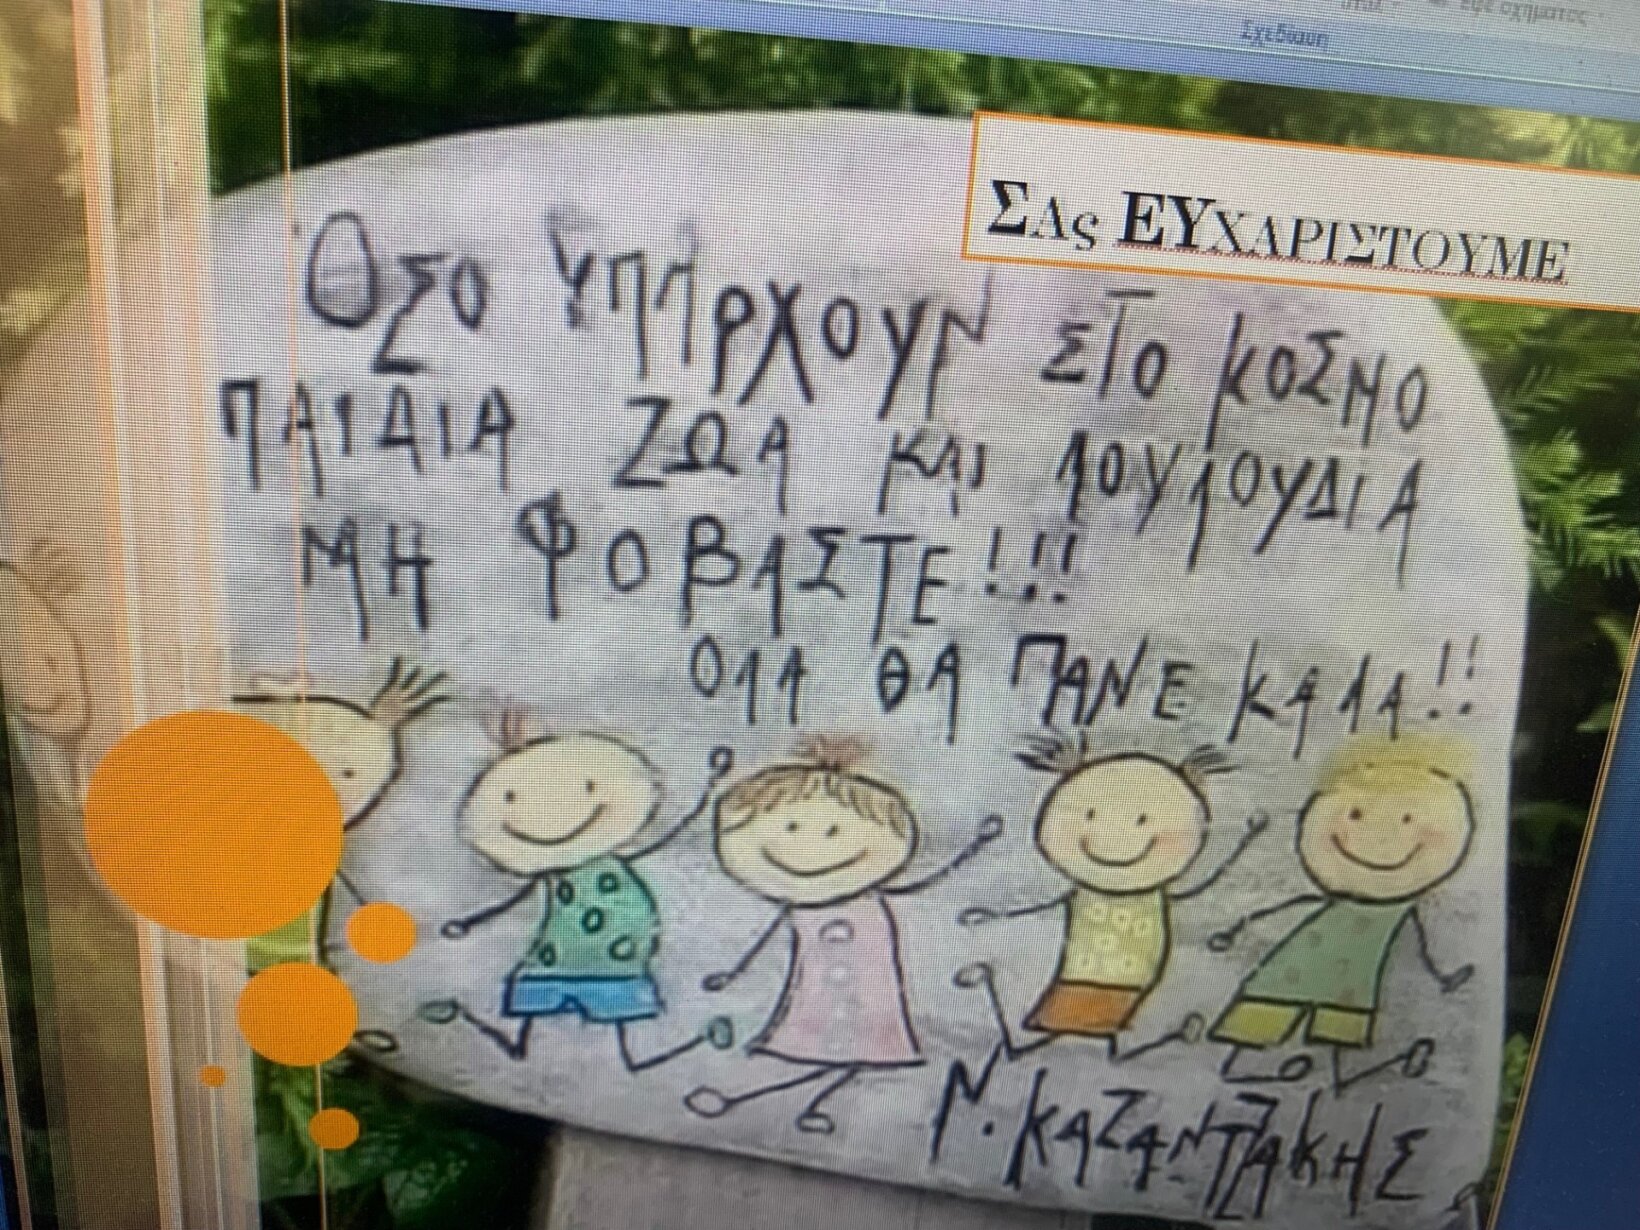 Σχεδίαση
ΣΑς ΕΥΧΑΡΙΣΤΟΥΜΕ
ΟΣΟ ΥΠΑΡΧΟΥΝ ΣΤΟ ΚΟΣΜΟ
ΠΑΙΔΙΑ ΖΩΑ ΚΑΙ ΛΟΥΛΟΥΔΙΑ
ΜΗ ΦΟΒΑΣΤΕ!!!
ΟΛΑ ΘΑ ΠΑΝΕ ΚΑΛΑ!!
Ν. ΚΑΖΑΝΤΖΑΚΗΣ